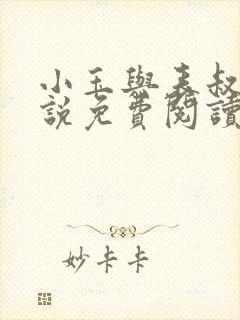 小玉與表叔
說免費閱讀
妙卡卡